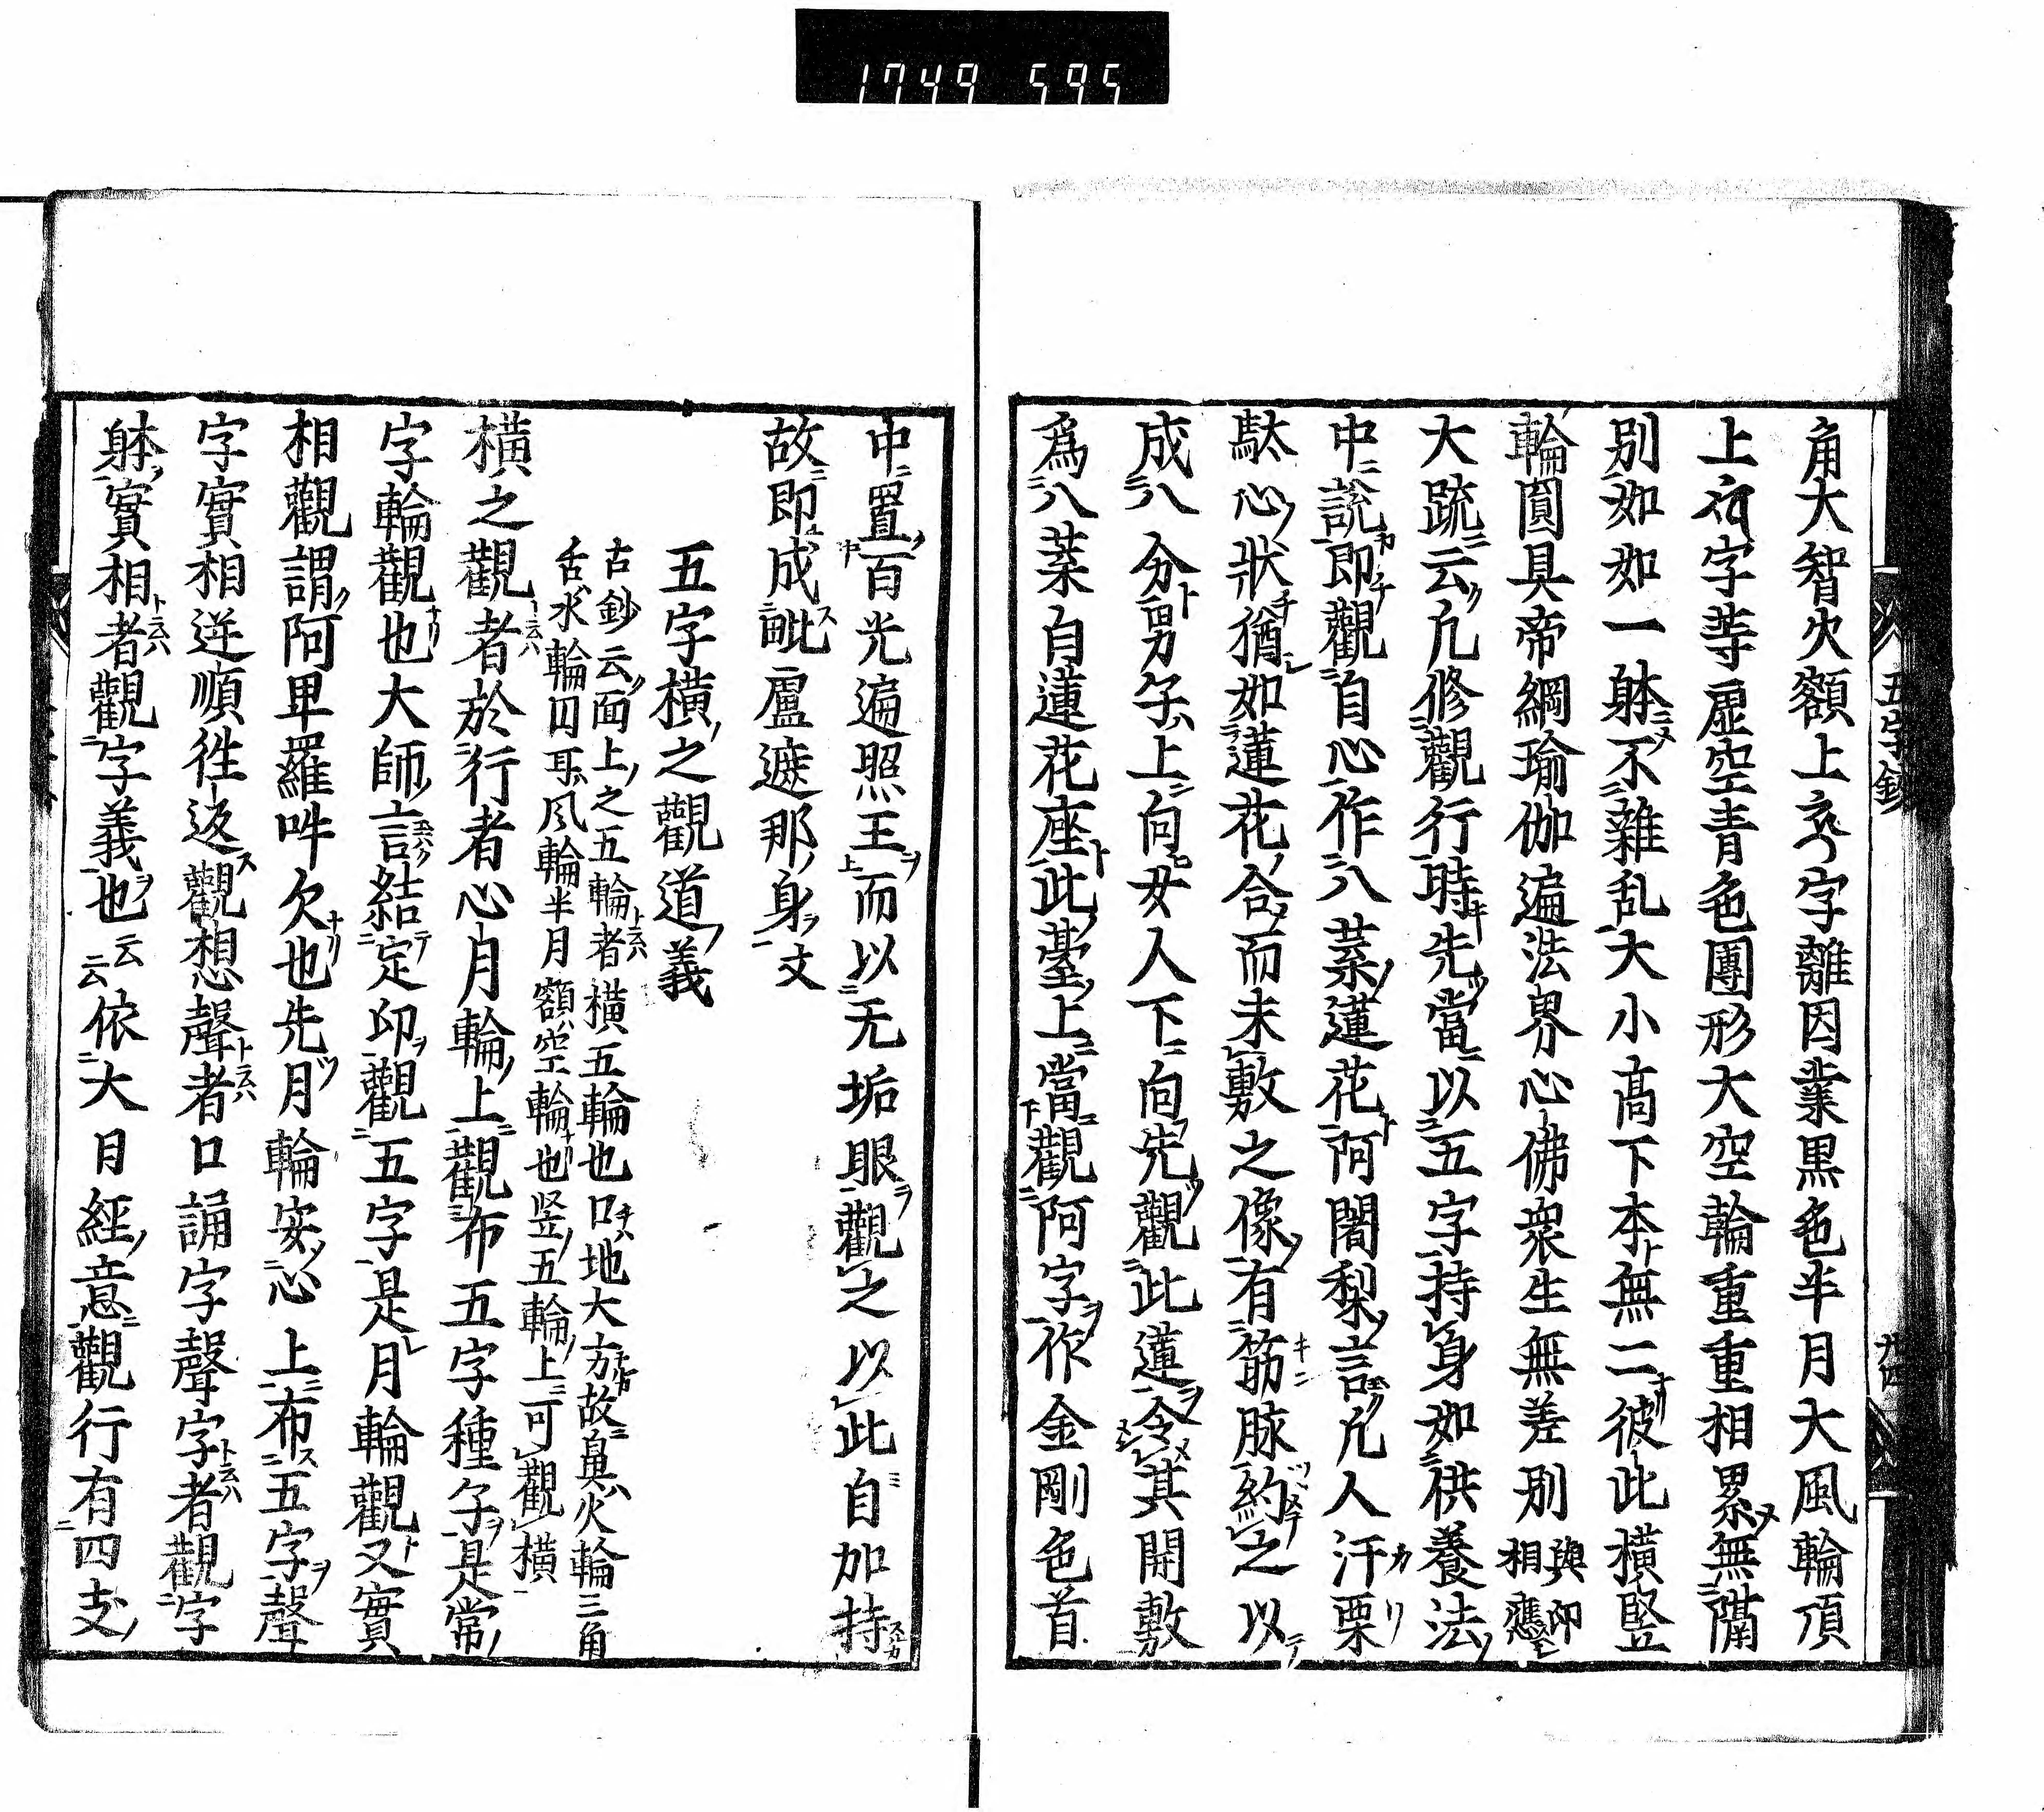 1749 595
角大智火額上字離因業黒色半月大風輪頂
上字等虚空青色團形大空輪重重相累無隔
別如如一躰不雜乱大小高下本無二彼此橫竪
輪圓具帝綱瑜伽遍法界心佛衆生無差別與印相應
大疏云凡修觀行時先當以五字持身如供養法
中說即觀自心作八葉蓮花阿闍梨言凡人汗栗
馱心狀猶如蓮花合而未敷之像有筋脉約之以
成八分男子上向女人下向先觀此蓮令其開敷
爲八葉白蓮花座此臺上當觀阿字作金剛色首
五字鈔
中置百光遍照王而以无垢眼觀之以此自加持
故即成毗盧遮那身文
五字橫之觀道義
古鈔云面上之五輪者橫五輪也口地大方故鼻火輪三角
舌水輪円耳風輪半月額空輪也竖五輪上可觀橫
橫之觀者於行者心月輪上觀布五字種子是常
字輪觀也大師言結定印觀五字是月輪觀又實
相觀謂阿卑羅吽欠也先月輪安心上布五字聲
字實相逆順徃返觀想聲者口誦字聲字者觀字
躰實相者觀字義也云云依大日經意觀行有四支